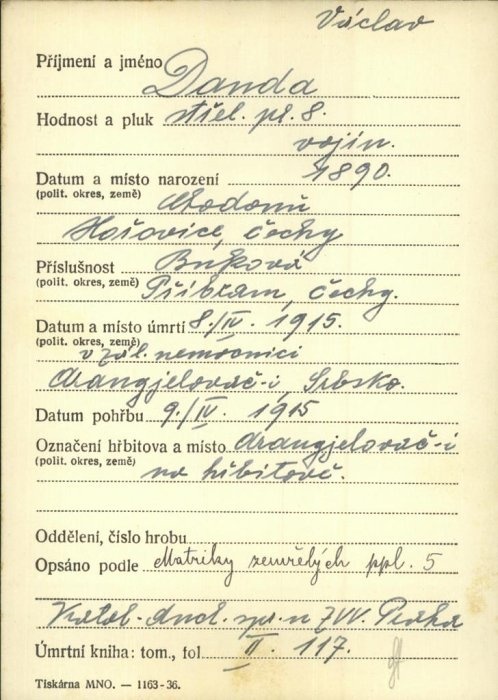 Václav
Příjmení a jméno Danda
Hodnost a pluk střel. pl. 8.
vojín.
Datum a místo narození 1890.
(polit. okres, země)
Hořovice, čechy
Příslušnost Buková
(polit. okres, země) Příbram, čechy.
Datum a místo úmrtí 8./IV. 1915.
(polit. okres, země)
v zál. nemocnici
Arangjelovač-i, Srbsko.
Datum pohřbu 9./IV. 1915
Označení hřbitova a místo Arangjelovač-i
(polit. okres, země)
na hřbitově.
Oddělení, číslo hrobu
Opsáno podle Matriky zemřelých ppl. 5
Katol. duch. spr. n ZVV. Praha
Úmrtní kniha: tom., fol. II. 117.
Tiskárna MNO. — 1163-36.